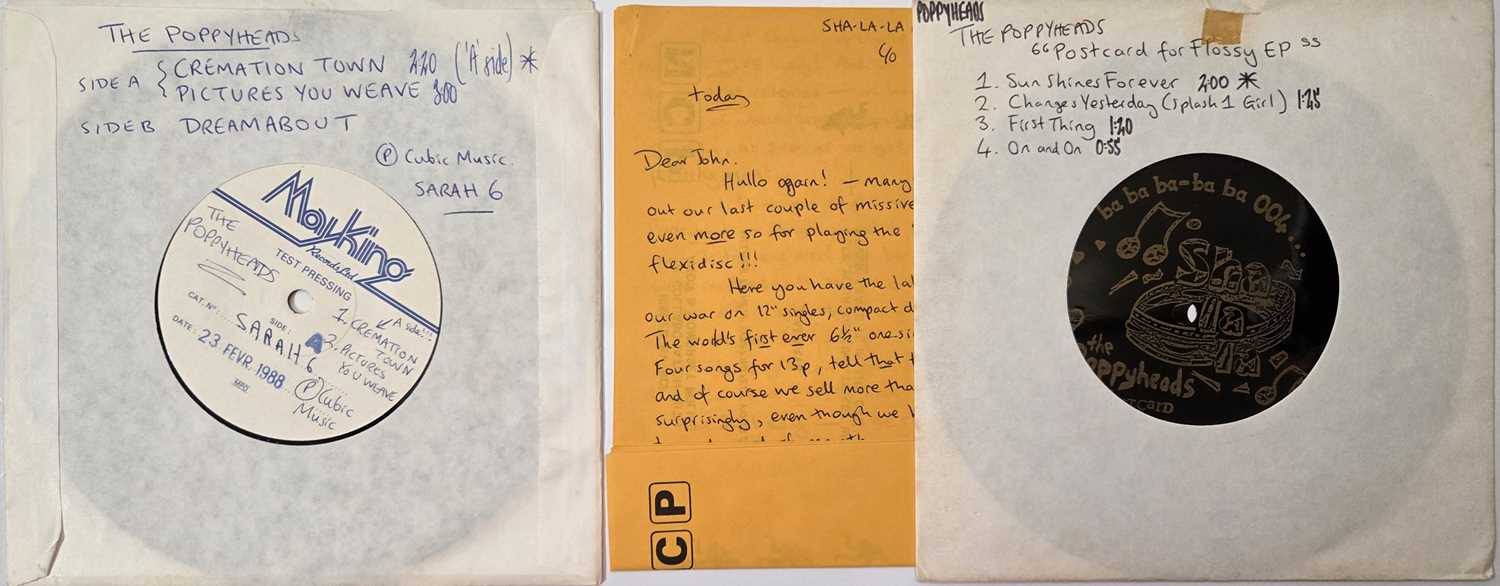 THE POPPYHEADS
SIDE A { CREMATION TOWN 2:20 ('A' side) *
PICTURES YOU WEAVE 3:00
SIDE B DREAMABOUT
Ⓟ Cubic Music.
SARAH 6
MayKing
Records Ltd
TEST PRESSING
THE
POPPYHEADS
CAT. Nº: SARAH 6
SIDE: A
DATE: 23 FEVR. 1988
A side!!!
1. CREMATION
TOWN
2. PICTURES
YOU WEAVE
Ⓟ Cubic
Music
MPO
SHA-LA-LA
c/o
today
Dear John.
Hullo again! – many
out our last couple of missive
even more so for playing the
flexidisc!!!
Here you have the la
our war on 12" singles, compact d
The world's first ever 6½" one-si
Four songs for 13p, tell that t
and of course we sell more tha
surprisingly, even though we
P
C
POPPYHEADS
THE POPPYHEADS
"Postcard for Flossy EP"
1. Sun Shines Forever 2:00 *
2. Changes Yesterday (Splash 1 Girl) 1:25
3. First Thing 1:20
4. On and On 0:55
ba ba ba-ba ba 004...
the
poppyheads